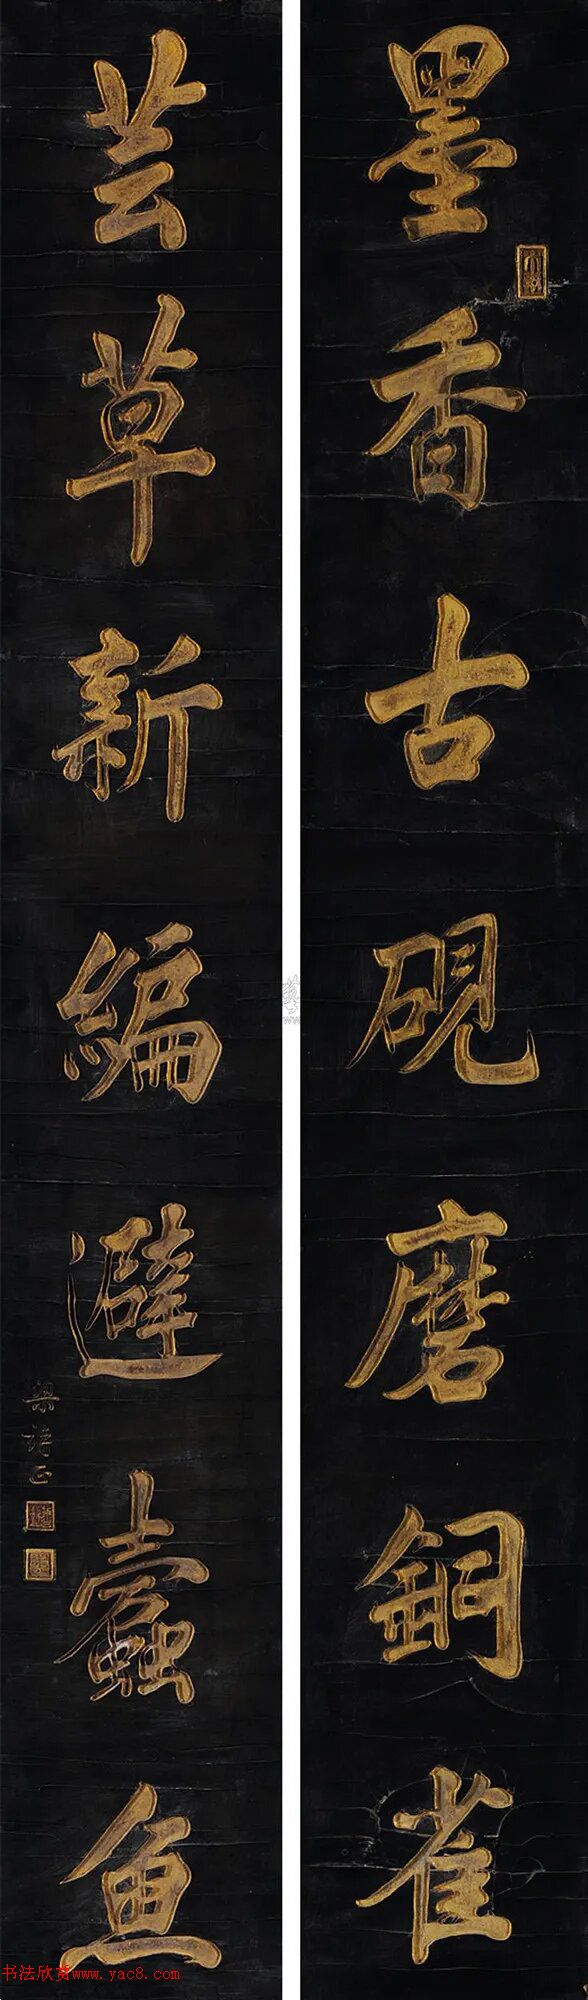 墨香古硯磨銅雀
芸草新編避蠹魚
梁詩正
书法欣赏www.yac8.com